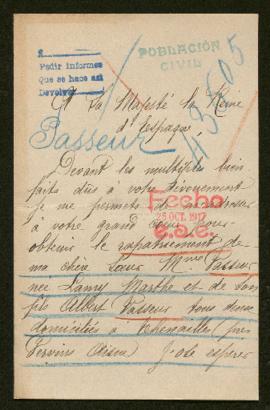 POBLACIÓN
CIVIL
Pedir informes
Que se hace así
Devolver
A Sa Majesté la Reine
d'Espagne
Passeur
Devant les multiples bien
faits dûs à votre dévouement
je me permets de
à votre grand cœur pour
obtenir le rapatriement de
Fecho
25 OCT. 1917
ma chère Sœur Mme Vasseur
née Lamy Marthe et de son
fils Albert Vasseur tous deux
domiciliés à Thenailles près
Vervins Aisne J'ose espérer